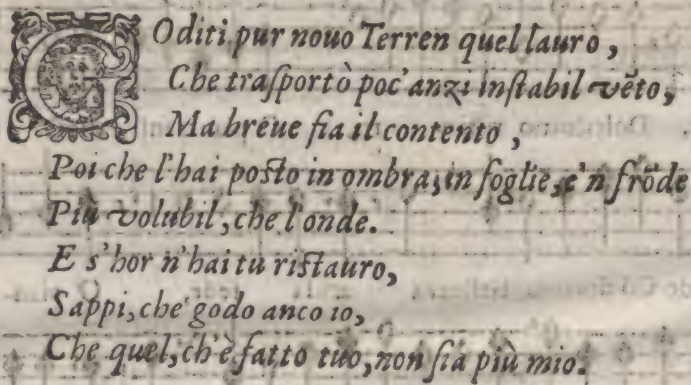 GOditi pur nouo Terren quel lauro,
Che traſportò poc'anzi inſtabil vẽto,
Ma breue fia il contento,
Poi che l'hai poſto in ombra, in foglie, e'n frõde
Più volubil, che l'onde.
E s'hor n'hai tu riſtauro,
Sappi, che godo anco io,
Che quel, ch'è fatto tuo, non ſia più mio.